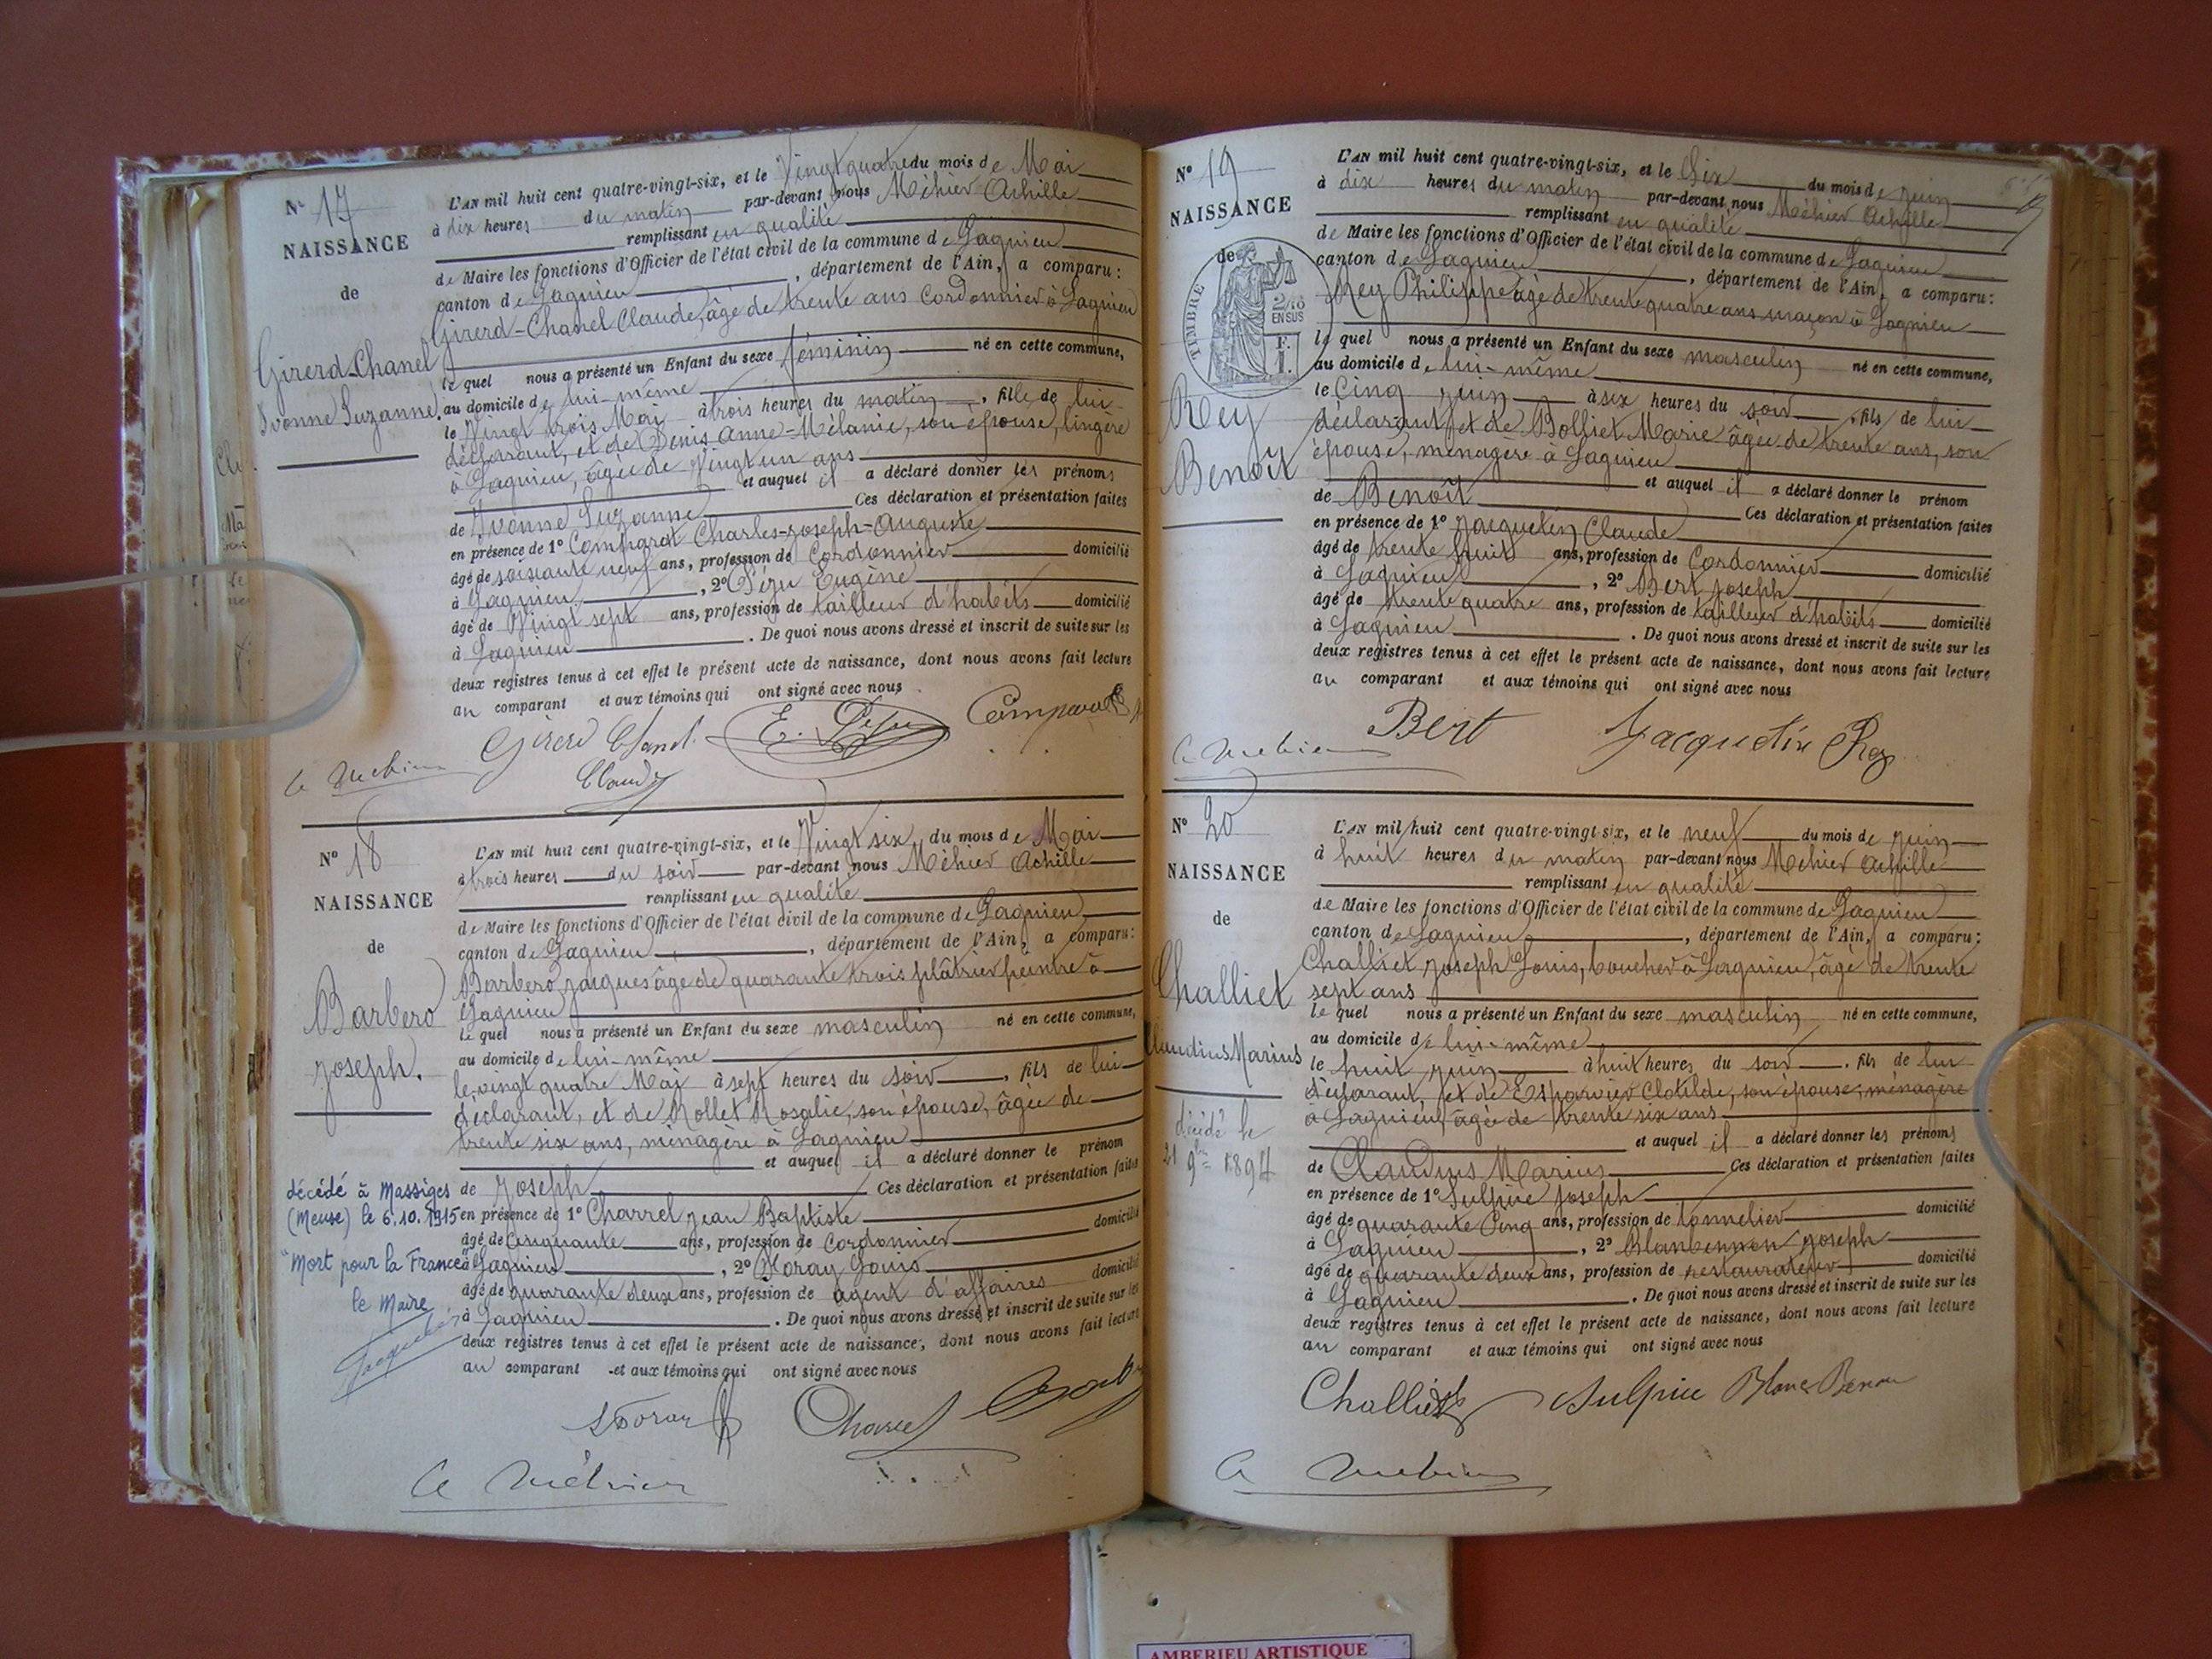 N° 17
NAISSANCE
de
Girerd-Chanel
Yvonne Suzanne.
L'AN mil huit cent quatre-vingt-six, et le Vingt quatre du mois de Mai
à dix heures du matin par-devant nous Méhier Achille
remplissant en qualité
de Maire les fonctions d'Officier de l'état civil de la commune de Lagnieu
canton de Lagnieu, département de l'Ain, a comparu:
Girerd-Chanel Claude, âgé de trente ans Cordonnier à Lagnieu
le quel nous a présenté un Enfant du sexe féminin né en cette commune,
au domicile de lui-même
le Vingt trois Mai à trois heures du matin, fille de lui
déclarant, et de Denis Anne-Mélanie, son épouse, lingère
à Lagnieu, âgée de Vingt un ans
et auquel il a déclaré donner les prénoms
de Yvonne Suzanne Ces déclaration et présentation faites
en présence de 1° Comparat Charles-Joseph-Auguste
âgé de soixante neuf ans, profession de Cordonnier domicilié
à Lagnieu, 2° Eugène
âgé de Vingt sept ans, profession de tailleur d'habits domicilié
à Lagnieu. De quoi nous avons dressé et inscrit de suite sur les
deux registres tenus à cet effet le présent acte de naissance, dont nous avons fait lecture
au comparant et aux témoins qui ont signé avec nous
Girerd Chanel Claude
Comparat
N° 18
NAISSANCE
de
Barbero
Joseph.
décédé à Massiges
(Meuse) le 6.10.1915
"Mort pour la France"
le Maire
L'AN mil huit cent quatre-vingt-six, et le Vingt six du mois de Mai
à trois heures du soir par-devant nous Méhier Achille
remplissant en qualité
de Maire les fonctions d'Officier de l'état civil de la commune de Lagnieu,
canton de Lagnieu, département de l'Ain, a comparu:
Barbero Jacques âgé de quarante trois plâtrier peintre à
Lagnieu
le quel nous a présenté un Enfant du sexe masculin né en cette commune,
au domicile de lui-même
le vingt quatre Mai à sept heures du soir, fils de lui
déclarant, et de Mollet Rosalie, son épouse, âgée de
trente six ans, ménagère à Lagnieu
et auquel il a déclaré donner le prénom
de Joseph Ces déclaration et présentation faites
en présence de 1° Charrel Jean Baptiste
âgé de Cinquante ans, profession de Cordonnier domicilié
à Lagnieu, 2° Louis
âgé de quarante deux ans, profession de agent d'affaires domicilié
à Lagnieu. De quoi nous avons dressé et inscrit de suite sur les
deux registres tenus à cet effet le présent acte de naissance, dont nous avons fait lecture
au comparant et aux témoins qui ont signé avec nous
Charrel
A Méhier
N° 19
NAISSANCE
de
TIMBRE
2/10
EN SUS
F.
1.
Rey
Benoît
L'AN mil huit cent quatre-vingt-six, et le Six du mois de juin
à dix heures du matin par-devant nous Méhier Achille
remplissant en qualité
de Maire les fonctions d'Officier de l'état civil de la commune de Lagnieu
canton de Lagnieu, département de l'Ain, a comparu:
Rey Philippe âgé de trente quatre ans maçon à Lagnieu
le quel nous a présenté un Enfant du sexe masculin né en cette commune,
au domicile de lui-même
le Cinq juin à six heures du soir, fils de lui
déclarant et de Bolliet Marie âgée de trente ans, son
épouse, ménagère à Lagnieu
et auquel il a déclaré donner le prénom
de Benoît Ces déclaration et présentation faites
en présence de 1° Jacquelin Claude
âgé de trente huit ans, profession de Cordonnier domicilié
à Lagnieu, 2° Bert Joseph
âgé de trente quatre ans, profession de tailleur d'habits domicilié
à Lagnieu. De quoi nous avons dressé et inscrit de suite sur les
deux registres tenus à cet effet le présent acte de naissance, dont nous avons fait lecture
au comparant et aux témoins qui ont signé avec nous
Bert Jacquelin Rey
A Méhier
N° 20
NAISSANCE
de
Challiet
Claudius Marius
décédé le
21 9bre 1894
L'AN mil huit cent quatre-vingt-six, et le neuf du mois de juin
à huit heures du matin par-devant nous Méhier Achille
remplissant en qualité
de Maire les fonctions d'Officier de l'état civil de la commune de Lagnieu
canton de Lagnieu, département de l'Ain, a comparu:
Challiet Joseph Louis, boucher à Lagnieu, âgé de trente
sept ans
le quel nous a présenté un Enfant du sexe masculin né en cette commune,
au domicile de lui-même
le huit juin à huit heures du soir, fils de lui
déclarant, et de Esparvier Clotilde, son épouse, ménagère
à Lagnieu, âgée de trente six ans
et auquel il a déclaré donner les prénoms
de Claudius Marius Ces déclaration et présentation faites
en présence de 1° Sulpice Joseph
âgé de quarante Cinq ans, profession de tonnelier domicilié
à Lagnieu, 2° Joseph
âgé de quarante deux ans, profession de restaurateur domicilié
à Lagnieu. De quoi nous avons dressé et inscrit de suite sur les
deux registres tenus à cet effet le présent acte de naissance, dont nous avons fait lecture
au comparant et aux témoins qui ont signé avec nous
Challiet Sulpice
A Méhier
AMBERIEU ARTISTIQUE